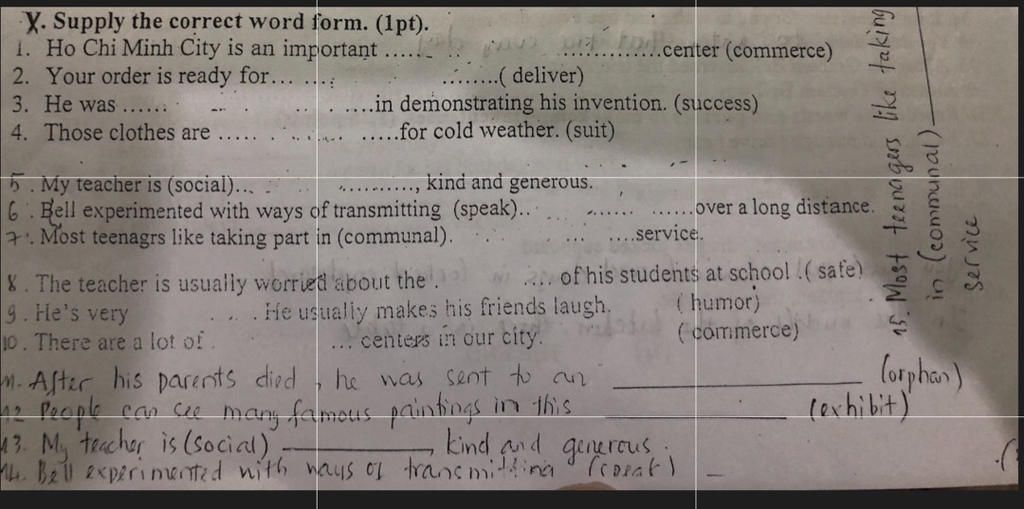 X. Supply the correct word form. (1pt).
1. Ho Chi Minh City is an important ..... ..................center (commerce)
2. Your order is ready for... ....: .:......( deliver)
3. He was ...... .....in demonstrating his invention. (success)
4. Those clothes are ..... .....for cold weather. (suit)
5. My teacher is (social)... ..........., kind and generous.
6. Bell experimented with ways of transmitting (speak).. ...... ......over a long distance.
7. Most teenagrs like taking part in (communal). .....service.
8. The teacher is usually worried about the . .... of his students at school .( safe)
9. He's very . . . He usually makes his friends laugh. ( humor)
10. There are a lot of ... centers in our city. ( commerce)
11. After his parents died, he was sent to an __________ (orphan)
12 People can see many famous paintings in this __________ (exhibit)
13. My teacher is (social) __________, kind and generous.
14. Bell experimented with ways of transmitting
15. Most teenagers like taking
in (communal) __________
service